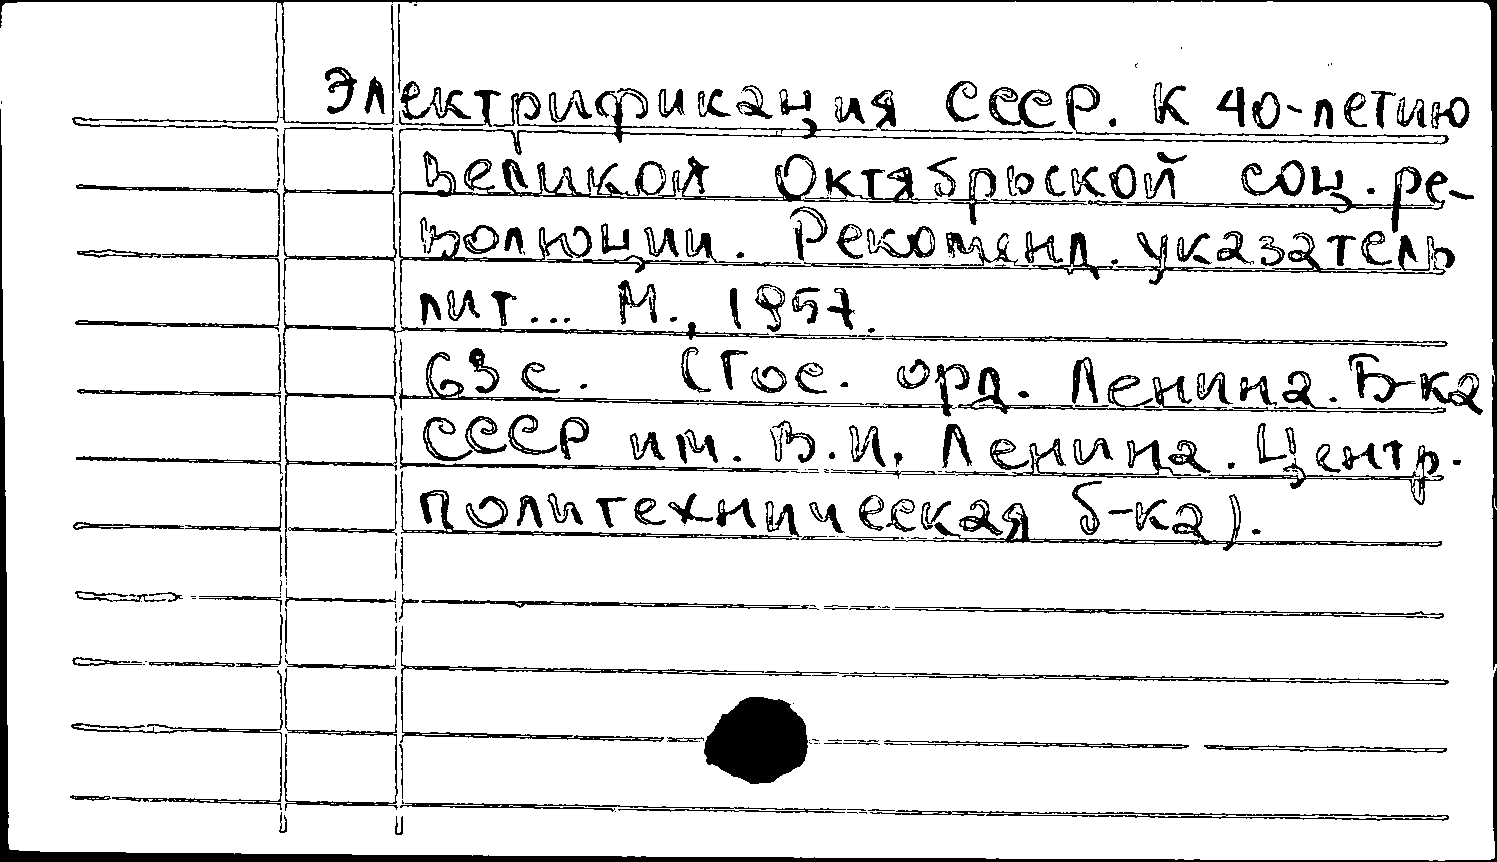 Электрификация СССР. К 40-летию
Великой Октябрьской соц. ре-
волюции. Рекоменд. указатель
лит... М., 1957.
63 с. (Гос. орд. Ленина. Б-ка
СССР им. В.И. Ленина. Центр.
политехническая б-ка).